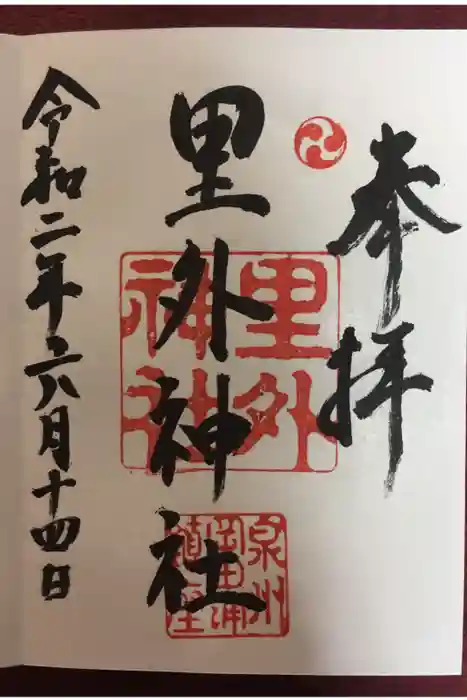 奉拝
里外神社
里外
神社
泉州
岡田浦
鎮座
令和二年六月十四日